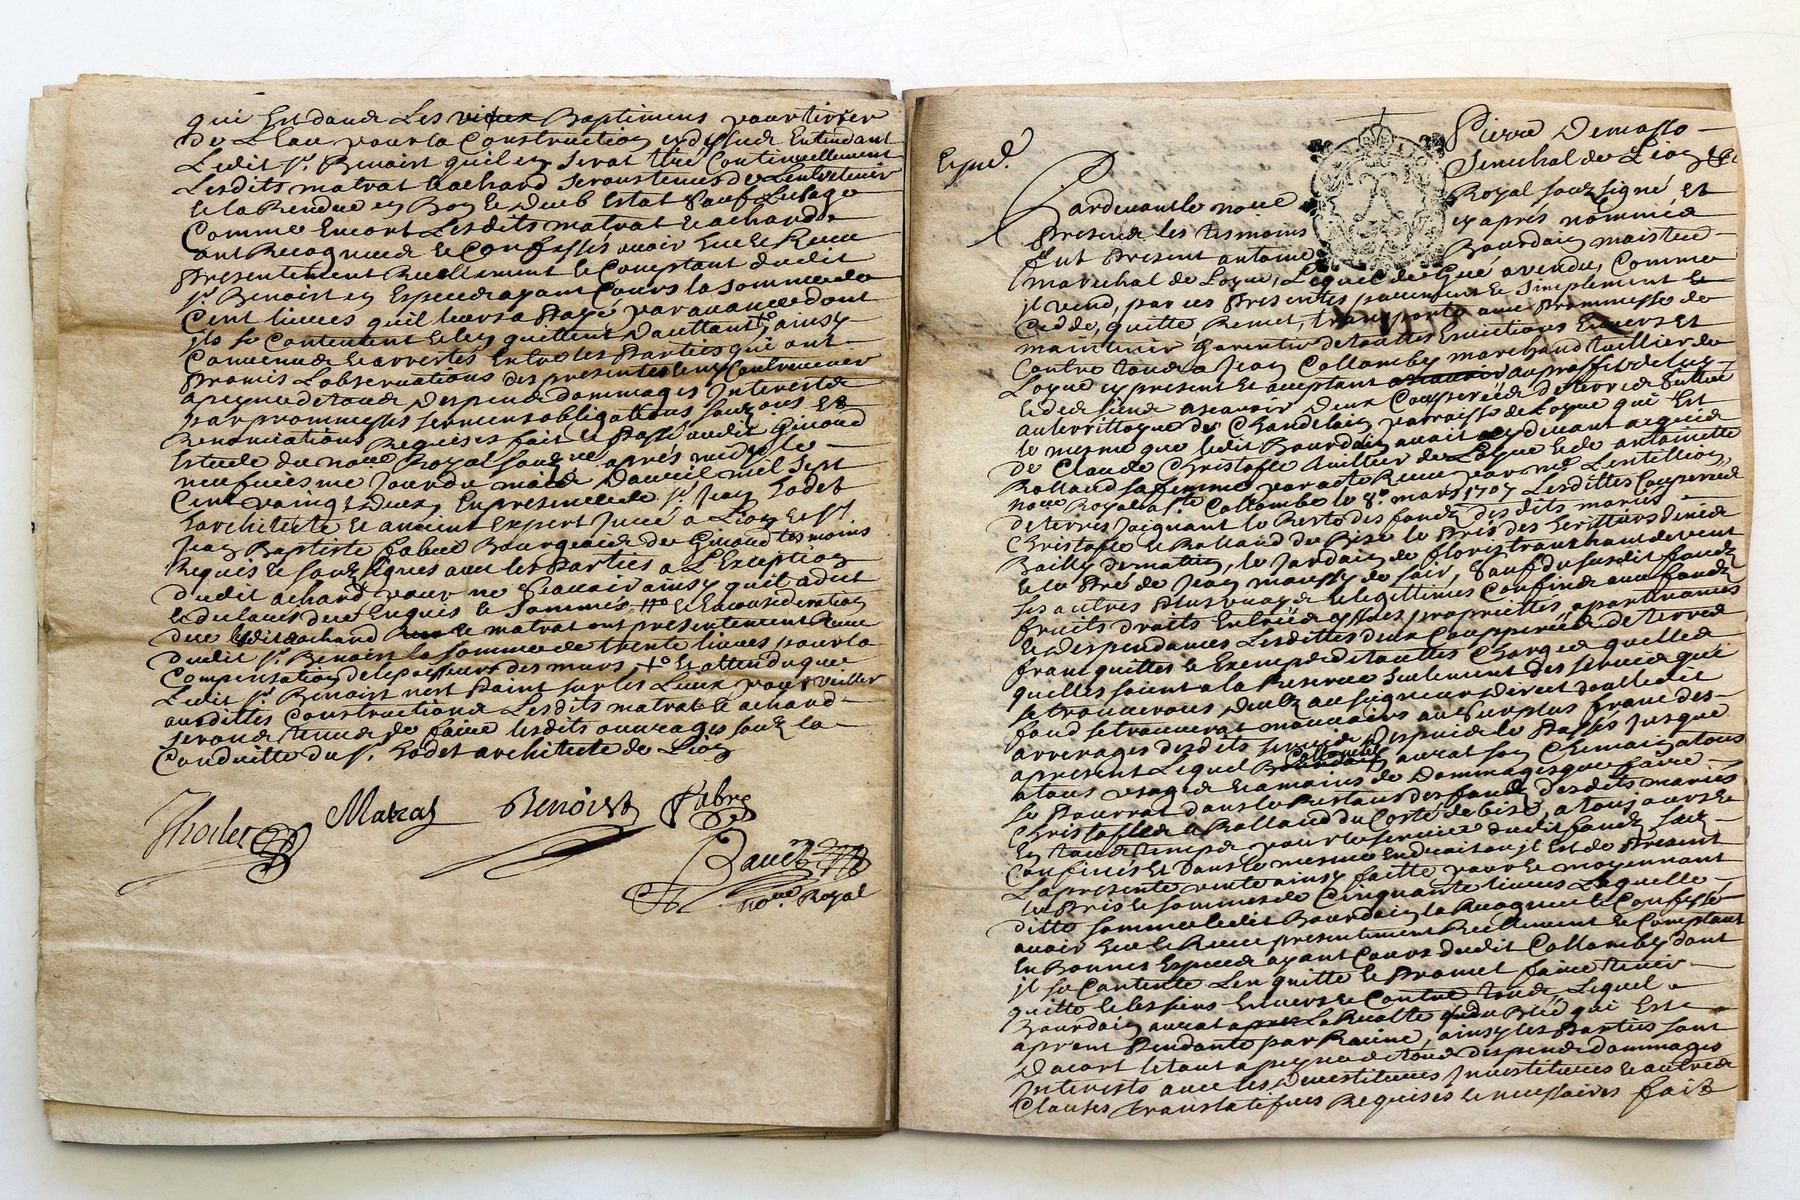 qui Est dans Les vieux Baptimens pour tirrer
de L'Eau pour la Construction cydessus Entendant
Ledit Sr. Benoist quil en serat tiré Continuellement
Lesdits matrat & achard seront tenus de L'entretenir
& la Rendre en Bon & deub Estat sauf Lusage
Comme Encort Lesdits matrat & achard
ont Recognus & Confessés avoir heu & Receu
presentement Reellement & Comptant dudit
Sr. Benoist en Especes ayant Cours la somme de
Cent livres quil leurs a payé par avance dont
ils se Contentent & len quittent Dauttant ainsy
Convenus & arrestés Entre les Parties qui ont
promis L'observations des presentes
a peyne de tous despens dommages Interests
par promesses serments obligations
Renonciations Requises fait & Passé audit Givord
Estude du noere Royal souzne après midy le
neufviesme Jour du mois Davril mil sept
Cent vaingt Deux En presence de Sr. Jean hodet
architecte & antient Expert Juré a Lion & Sr.
Jean Baptiste fabre Bourgeois de Givord tesmoins
Requis & souzsignes avec les Parties a L'Exception
dudit achard pour ne scavoir ainsy quil a dit
& declaré de ce Enquis & sommés, & En consideration
de ce ledit achard & matrat ont presentement Receu
dudit Sr. Benoist la somme de trente livres pour la
Compensation de lepaisseurs des murs, & attendu que
Ledit Sr. Benoist nest Point sur les Lieux pour veiller
ausdittes Constructions Lesdits matrat & achard
seront tenus de faire lesdits ouvrages sous la
Conduitte du Sr. hodet architecte de Lion
hodet Matrat Benoist Fabre
noere Royal
Exped.
Pierre Demasso
Senechal de Lion &c
Pardevant le noere Royal souz signé Et
presents les tesmoins cy après nommés
fut present antoine Bourdain maistre
marechal de Loyre, Lequel de gré a vendu, Comme
il vend, par ces presentes purement & simplement &
Cedde, quitte Remet, transporte avec Prommesse de
maintenir Garentir de touttes Evictions Envers Et
Contre tous a Jean Collomby marchand taillier de
Loyre cy present Et aceptant au proffit de luy
& des siens ascavoir Deux Coupperées de terres scittué
au territtoyre du Chandelain parroisse de Loyre qui Est
le mesme que ledit Bourdain avait cy devant acquis
de Claude Christofle tuillier de Loyre & de antoinette
Rolland sa femme par acte Receu par me Lentillion
noere Royal a Ste Collombe le 8e. mars 1707 Lesdittes Coupperées
de terres Joignant le Reste des fonds desdits mariés
Christofle & Rolland de Bize le Pris des herittiers Denis
Bailly de matin, le Jardain de floris tranchant de vent
& le Pré de Jean moussy de soir, sauf du susdit fonds
ses autres Plus vrays & legittimes Confins avec fonds
fruits droits Entrées yssües proprietés apartenances
& dependances Lesdittes deux Coupperées de terres
franquittes & Exemptes de touttes Charges quelles
quelles soient a la Reserve seulement des servis qui
se trouverons deubs au seigneurs direct dont ledit
fond se trouverat mouvoirs au surplus franc des
arrerages desdits servis Despuis le Passés jusque
apresent Lequel Collomby aurat son Chemain a tous
a tous usages & a moins de Dommages que faire
se Pourrat dans le Restant des fonds desdits mariés
Christofle & Rolland du Costé de bise, a tousjours &
En tous temps pour le service dudit fonds, sauf
Confines Et dans le mesme Endroit ou il Est de Present
La presente vente ainsy faitte pour & moyennant
le Pris & sommes de Cinquante livres Laquelle
ditte somme ledit Bourdain la Recognue & Confessé
avoir heu & Receu presentement Reellement & Comptant
En Bonnes Especes ayant Cours dudit Collomby dont
il se Contente Len quitte & Promet faire tenir
quitte & les siens Envers & Contre tous Lequel
Bourdain aurat La Recolte du Blé qui Est
apresent Pendante par Racine, ainsy les Parties sont
Dacort & tout a peyne de tous despens dommages
Interests avec les Devestitures Investitures & autres
Clauses translatifves Requises & necessaires fait